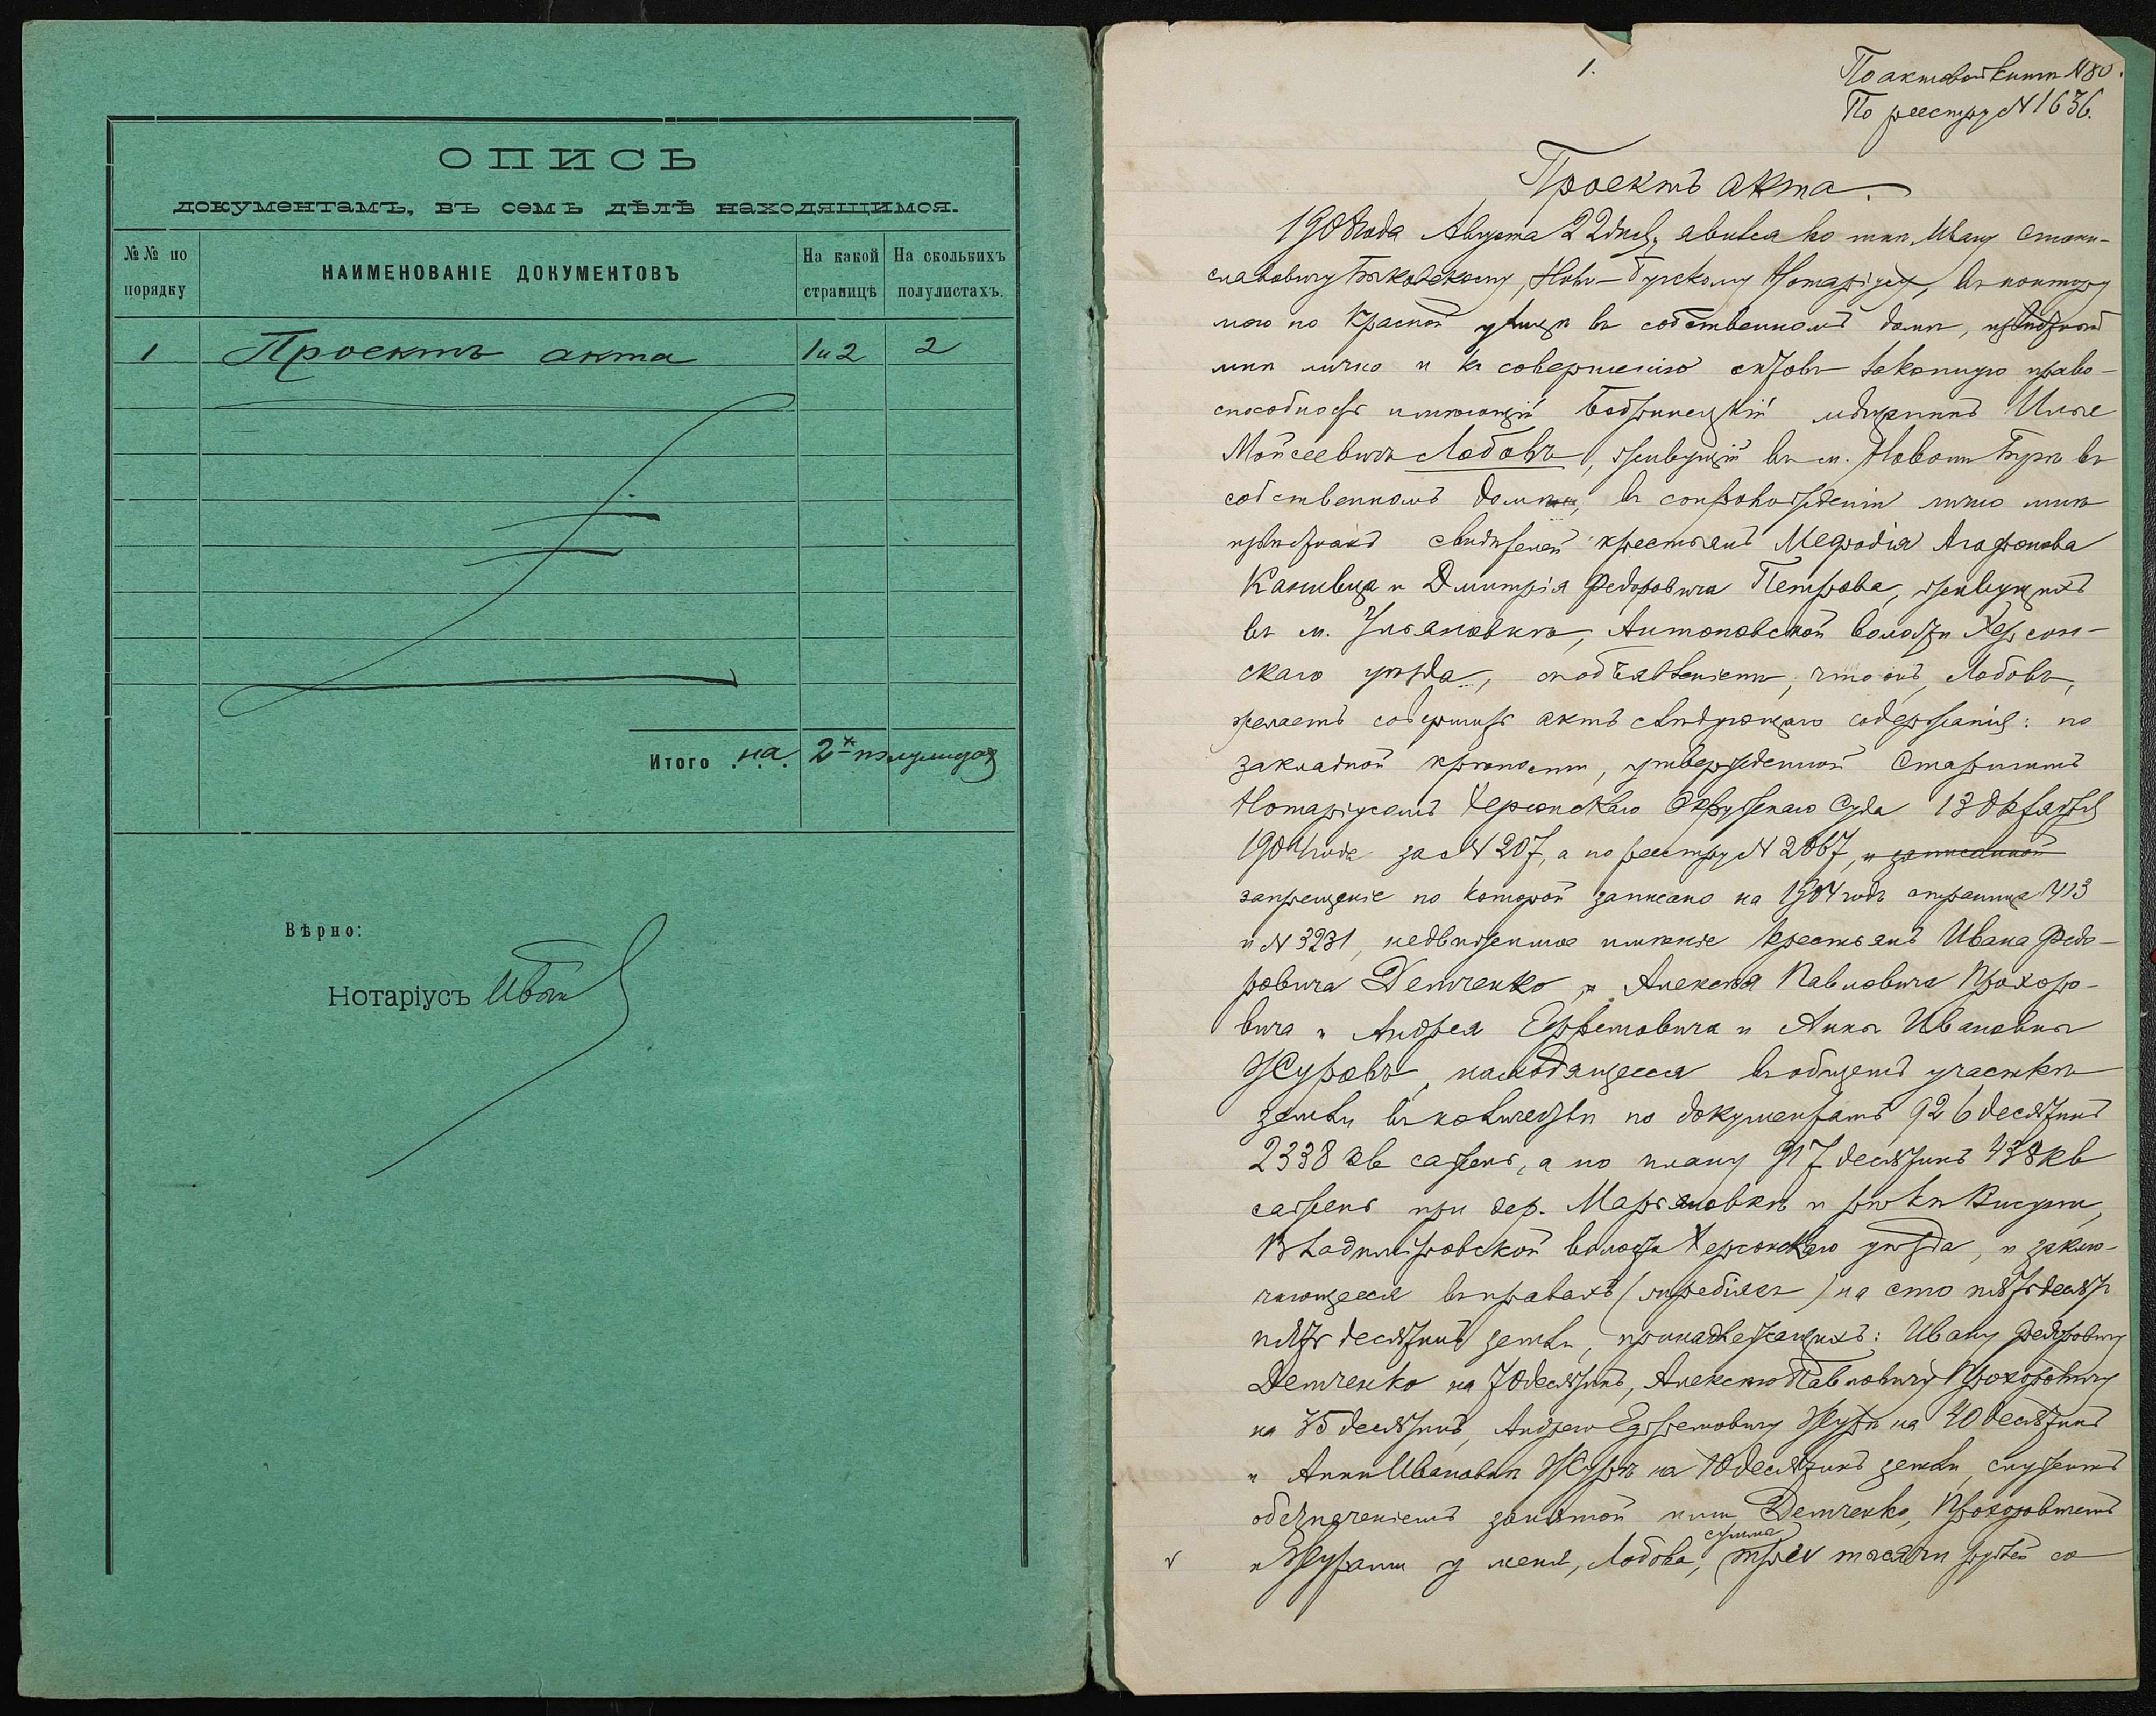 ОПИСЬ
документамъ, въ семъ дѣлѣ находящимся.
№№ по порядку
НАИМЕНОВАНІЕ ДОКУМЕНТОВЪ
На какой страницѣ
На сколькихъ полулистахъ.
1 Проектъ акта 1 и 2 2
Итого на 2-х полулистах
Вѣрно:
Нотаріусъ
1.
По актовой книгѣ № 80.
По реестру № 1636.
Проектъ акта.
1908 года Августа 22 дня, явился ко мнѣ, Ивану Стани-
славовичу Быковскому, Ново-Бугскому Нотаріусу, въ контору
мою по Красной улицѣ въ собственномъ домѣ, извѣстный
мнѣ лично и къ совершенію актовъ законную право-
способность имѣющій Бобринецкій мѣщанинъ Илья
Мойсеевичъ Лобовъ, живущій въ м. Новомъ Бугѣ въ
собственномъ домѣ, въ сопровожденіи лично мнѣ
извѣстныхъ свидѣтелей крестьянъ Мефодія Агафонова
Канивца и Дмитрія Федоровича Петрова, живущихъ
въ м. Ульяновкѣ, Антоновской волости Херсон-
скаго уѣзда, съ объявленіемъ, что онъ, Лобовъ,
желаетъ совершить актъ слѣдующаго содержанія: по
закладной крѣпости, утвержденной Старшимъ
Нотаріусомъ Херсонскаго Окружнаго Суда 13 октября
1904 года за № 207, а по реестру № 2067, и записанной
запрещеніе по которой записано на 1904 годъ страница 413
и № 3231, недвижимое имѣніе крестьянъ Ивана Федо-
ровича Демченко, и Алексѣя Павловича Прохоро-
вича и Андрея Ефремовича и Анны Ивановны
Журовъ, находящееся въ общемъ участкѣ
земли въ количествѣ по документамъ 926 десятинъ
2338 кв саженъ, а по плану 917 десятинъ 438 кв
саженъ при дер. Марьяновкѣ и рѣкѣ Висуни,
Владимировской волости Херсонскаго уѣзда, и заклю-
чающееся въ правахъ (жребіяхъ) на сто пятьдесятъ
пять десятинъ земли, принадлежащихъ: Ивану Федоровичу
Демченко на 70 десятинъ, Алексѣю Павловичу Прохоровичу
на 35 десятинъ, Андрею Ефремовичу Журѣ на 40 десятинъ
и Аннѣ Ивановнѣ Журѣ на 10 десятинъ земли, служитъ
обезпеченіемъ занятой ими Демченко, Прохоровичемъ
сумма
и Журами у меня, Лобова, трех тысячи рублей со